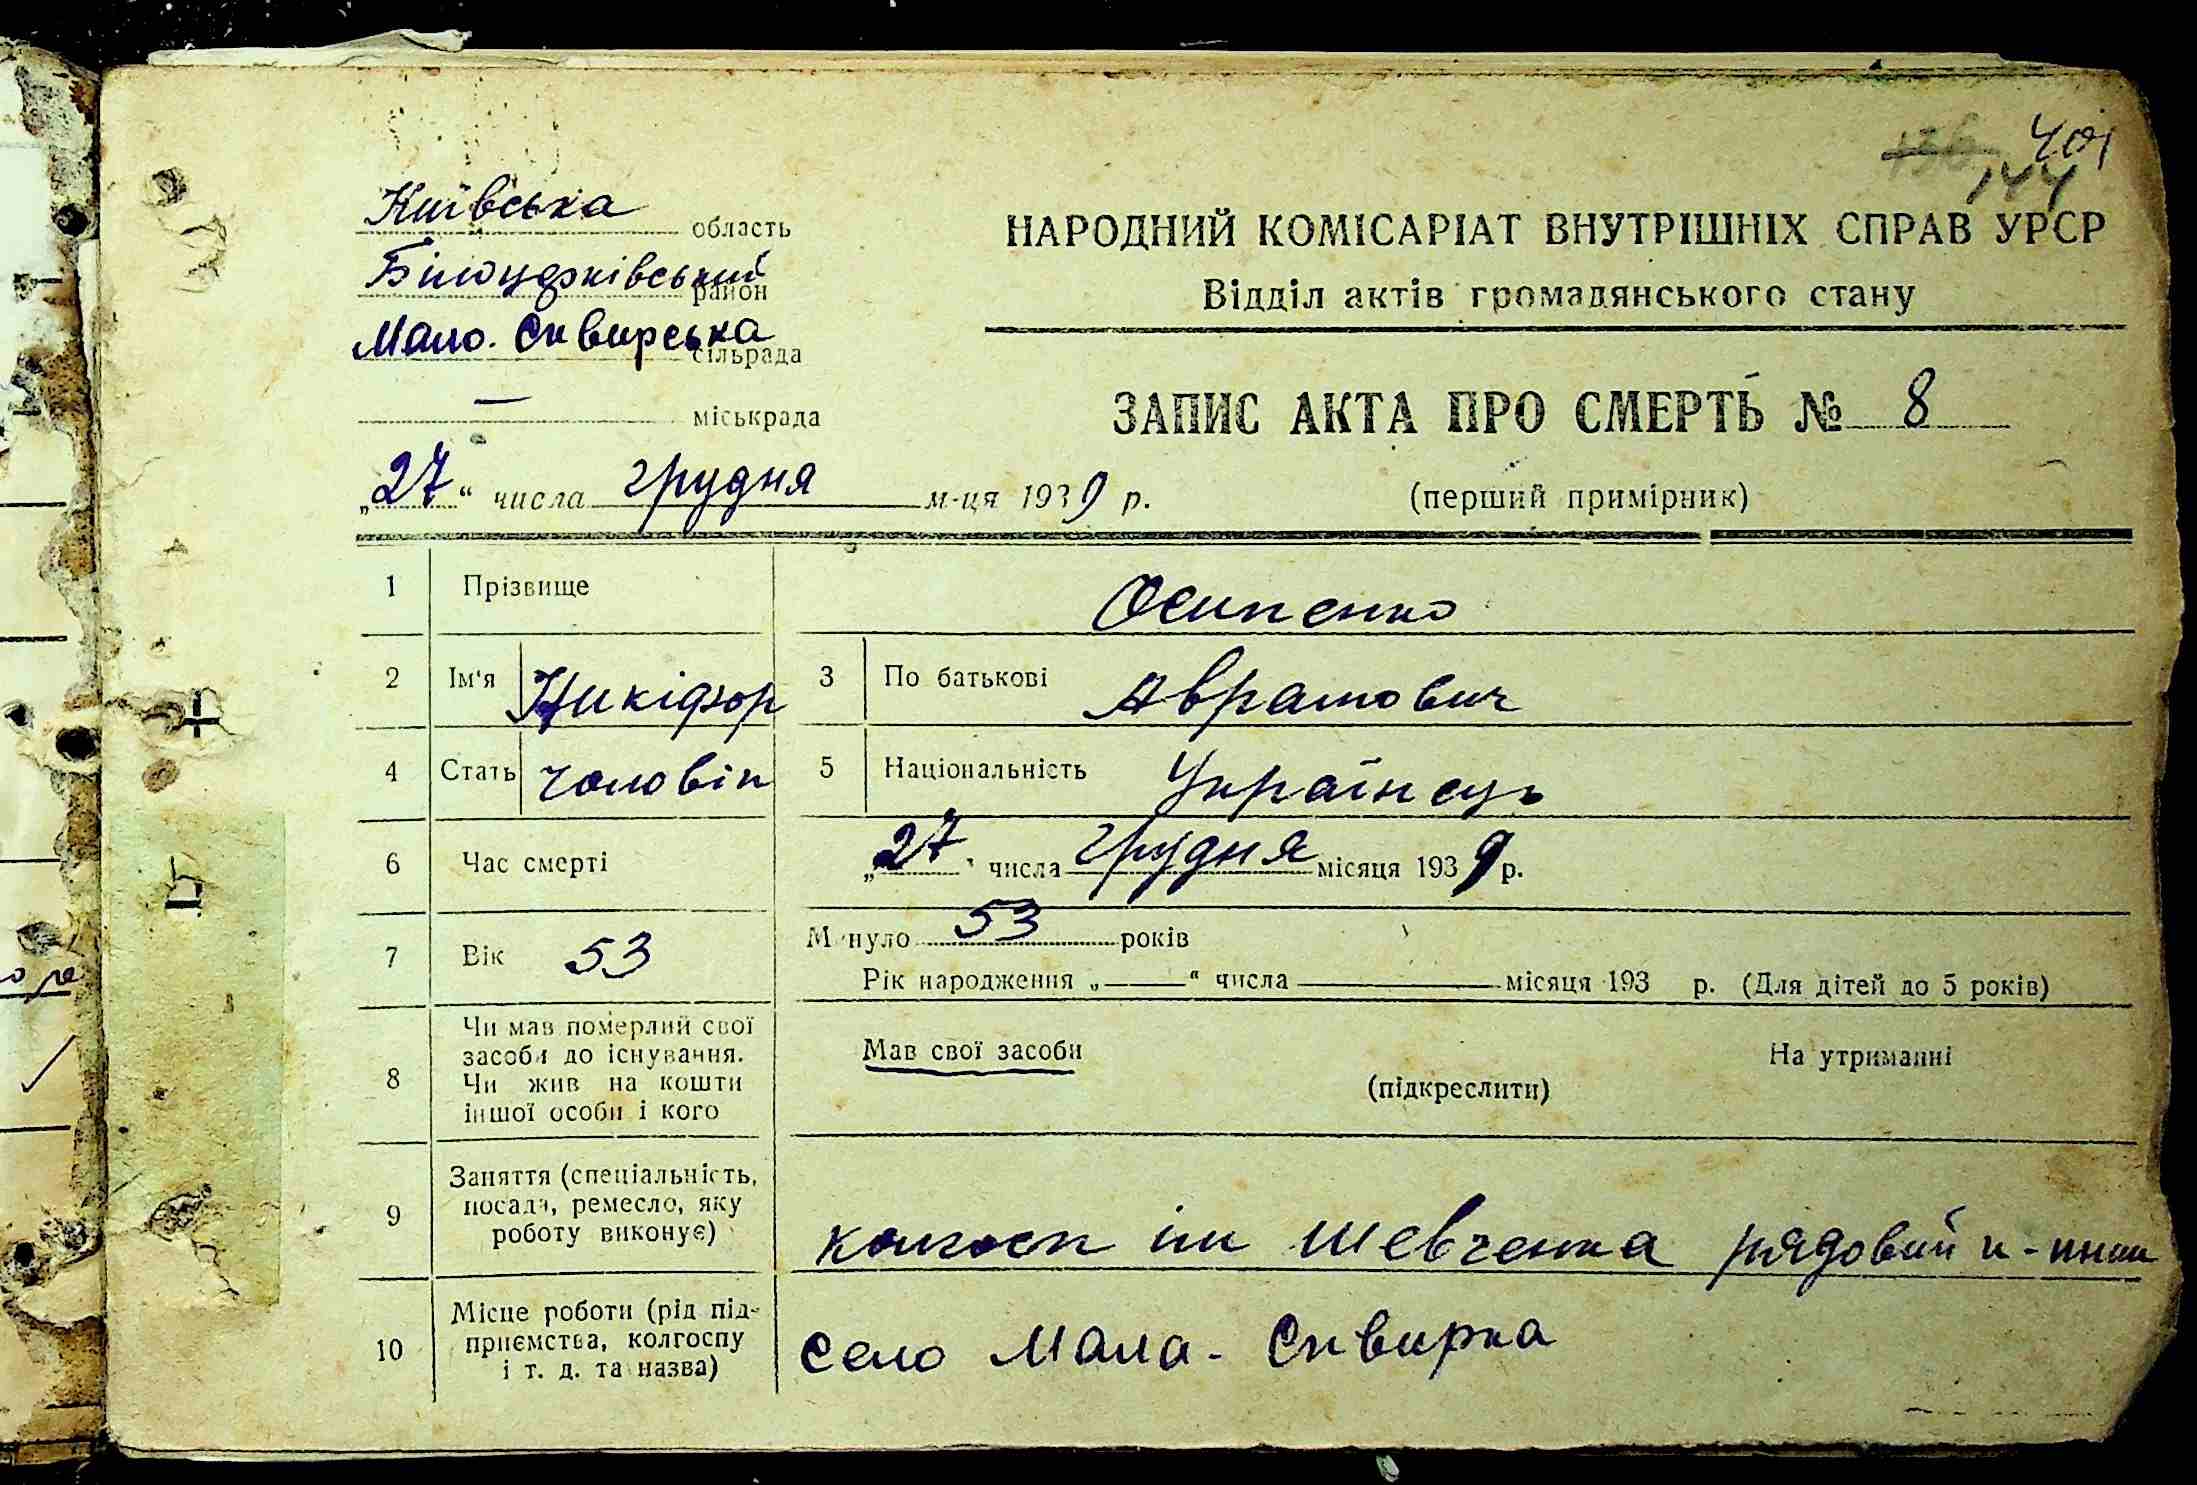 401
144
Київська область
Білоцерківський район
Мало. Сквирська сільрада
— міськрада
„27“ числа грудня м-ця 1939 р.
НАРОДНИЙ КОМІСАРІАТ ВНУТРІШНІХ СПРАВ УРСР
Відділ актів громадянського стану
ЗАПИС АКТА ПРО СМЕРТЬ № 8
(перший примірник)
1 Прізвище Осипенко
2 Ім'я Никіфор 3 По батькові Аврамович
4 Стать чоловік 5 Національність Українець
6 Час смерті „27“ числа грудня місяця 1939 р.
7 Вік 53 Минуло 53 років
Рік народження „—“ числа — місяця 193 р. (Для дітей до 5 років)
8 Чи мав померлий свої
засоби до існування.
Чи жив на кошти
іншої особи і кого
Мав свої засоби
(підкреслити)
На утриманні
9 Заняття (спеціальність,
посада, ремесло, яку
роботу виконує)
колгосп ім Шевченка рядовий
10 Місце роботи (рід під-
приємства, колгоспу
і т. д. та назва)
село Мала - Сквирка